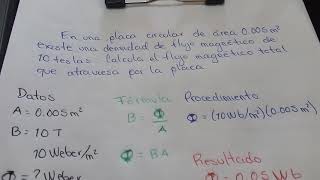 En una placa circular de área 0.005m²
existe una densidad de flujo magnético de
10 teslas. Calcula el flujo magnético total
que atraviesa por la placa
Datos
A = 0.005m²
B = 10 T
10 Weber/m²
Φ = ? Weber
Fórmula
B = Φ/A
Φ = BA
Procedimiento
Φ = (10Wb/m²)(0.005m²)
Resultado
Φ = 0.05 Wb